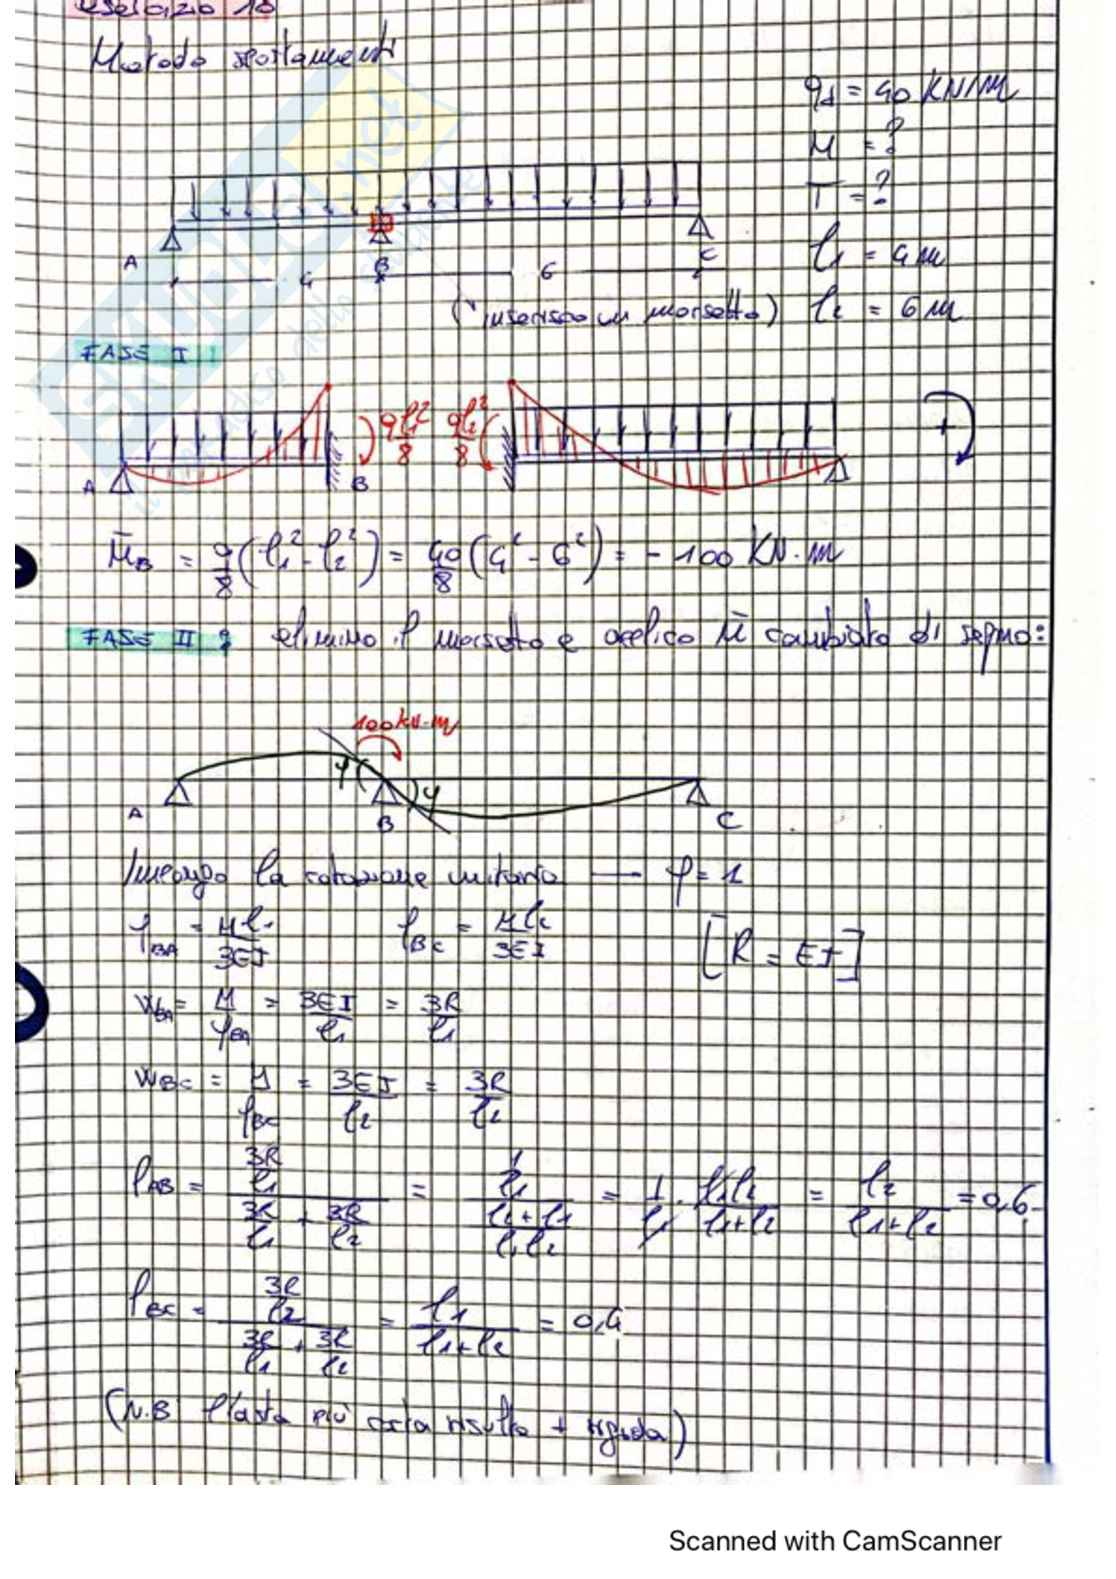 esercizio 10
Metodo spostamenti
qd = 40 KN/m
M = ?
T = ?
A
B
C
4
6
l1 = 4 m
(inserisco un morsetto) l2 = 6 m
FASE I :
ql1²/8 ql2²/8 +
A B
M̄B = q/8 (l1² - l2²) = 40/8 (4² - 6²) = - 100 KN·m
FASE II : elimino il morsetto e applico M̄ cambiato di segno:
100 kN·m
φ φ
A B C
Impongo la rotazione unitaria — φ = 1
φBA = Ml1/3EI φBC = Ml2/3EI [R = EI]
WBA = M/φBA = 3EI/l1 = 3R/l1
WBC = M/φBC = 3EI/l2 = 3R/l2
ρAB = (3R/l1)/(3R/l1 + 3R/l2) = (1/l1)/((l2+l1)/(l1l2)) = 1/l1 · l1l2/(l1+l2) = l2/(l1+l2) = 0,6
ρBC = (3R/l2)/(3R/l1 + 3R/l2) = l1/(l1+l2) = 0,4
(N.B l'asta più corta risulta + rigida)
Scanned with CamScanner